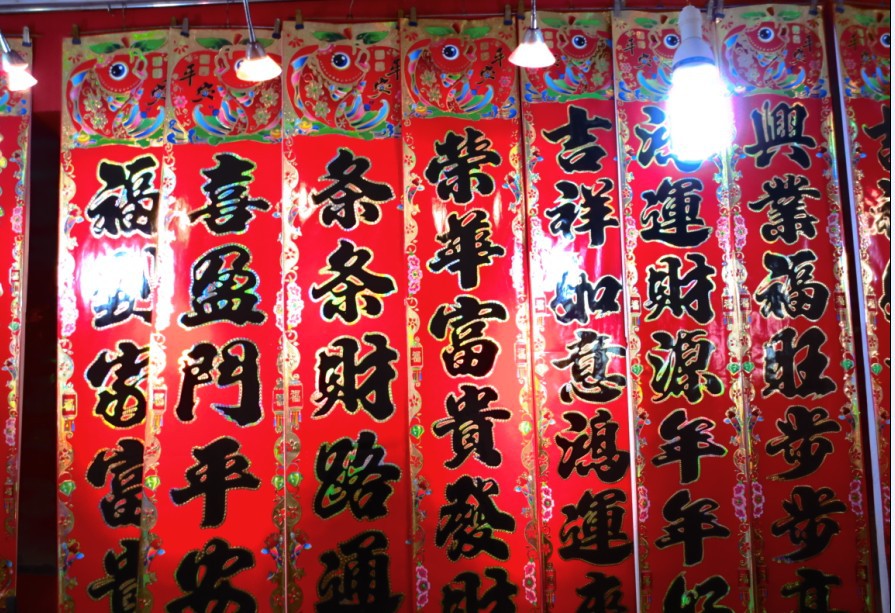 興業福旺步步高
運財源年年好
吉祥如意鴻運來
榮華富貴發財
条条財路通
喜盈門平安
福到家富貴